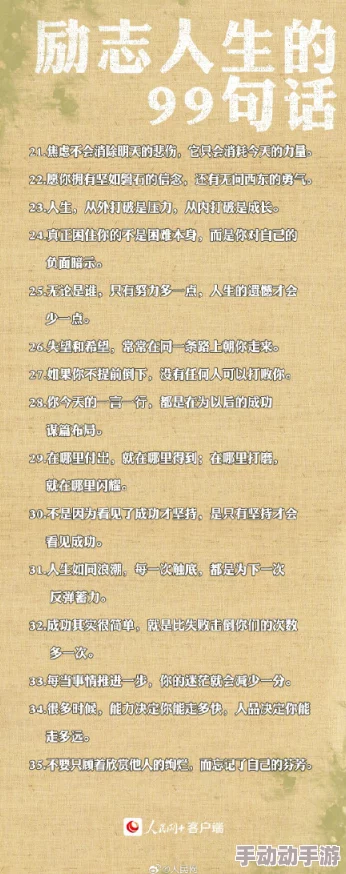 励志人生的
99句话
21.焦虑不会消除明天的悲伤，它只会消耗今天的力量。
22.愿你拥有坚如磐石的信念，还有无问西东的勇气。
23.人生，从外打破是压力，从内打破是成长。
24.真正困住你的不是困难本身，而是你对自己的
负面暗示。
25.无论是谁，只有努力多一点，人生的遗憾才会
少一点。
26.失望和希望，常常在同一条路上朝你走来。
27.如果你不提前倒下，没有任何人可以打败你。
28.你今天的一言一行，都是在为以后的成功
谋篇布局。
29.在哪里付出，就在哪里得到；在哪里打磨，
就在哪里闪耀。
30.不是因为看见了成功才坚持，是只有坚持才会
看见成功。
31.人生如同浪潮，每一次触底，都是为下一次
反弹蓄力。
32.成功其实很简单，就是比失败击倒你们的次数
多一次。
33.每当事情推进一步，你的迷茫就会减少一分。
34.很多时候，能力决定你能走多快，人品决定你能
走多远。
35.不要只顾着欣赏他人的绚烂，而忘记了自己的芬芳。
人民网+客户端
@人民网
手动动手游